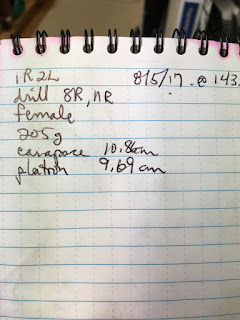 1R2L 8/5/17 @ 143
drill 8R, 11R
female
205g
carapace 10.8cm
plastron 9.69 cm